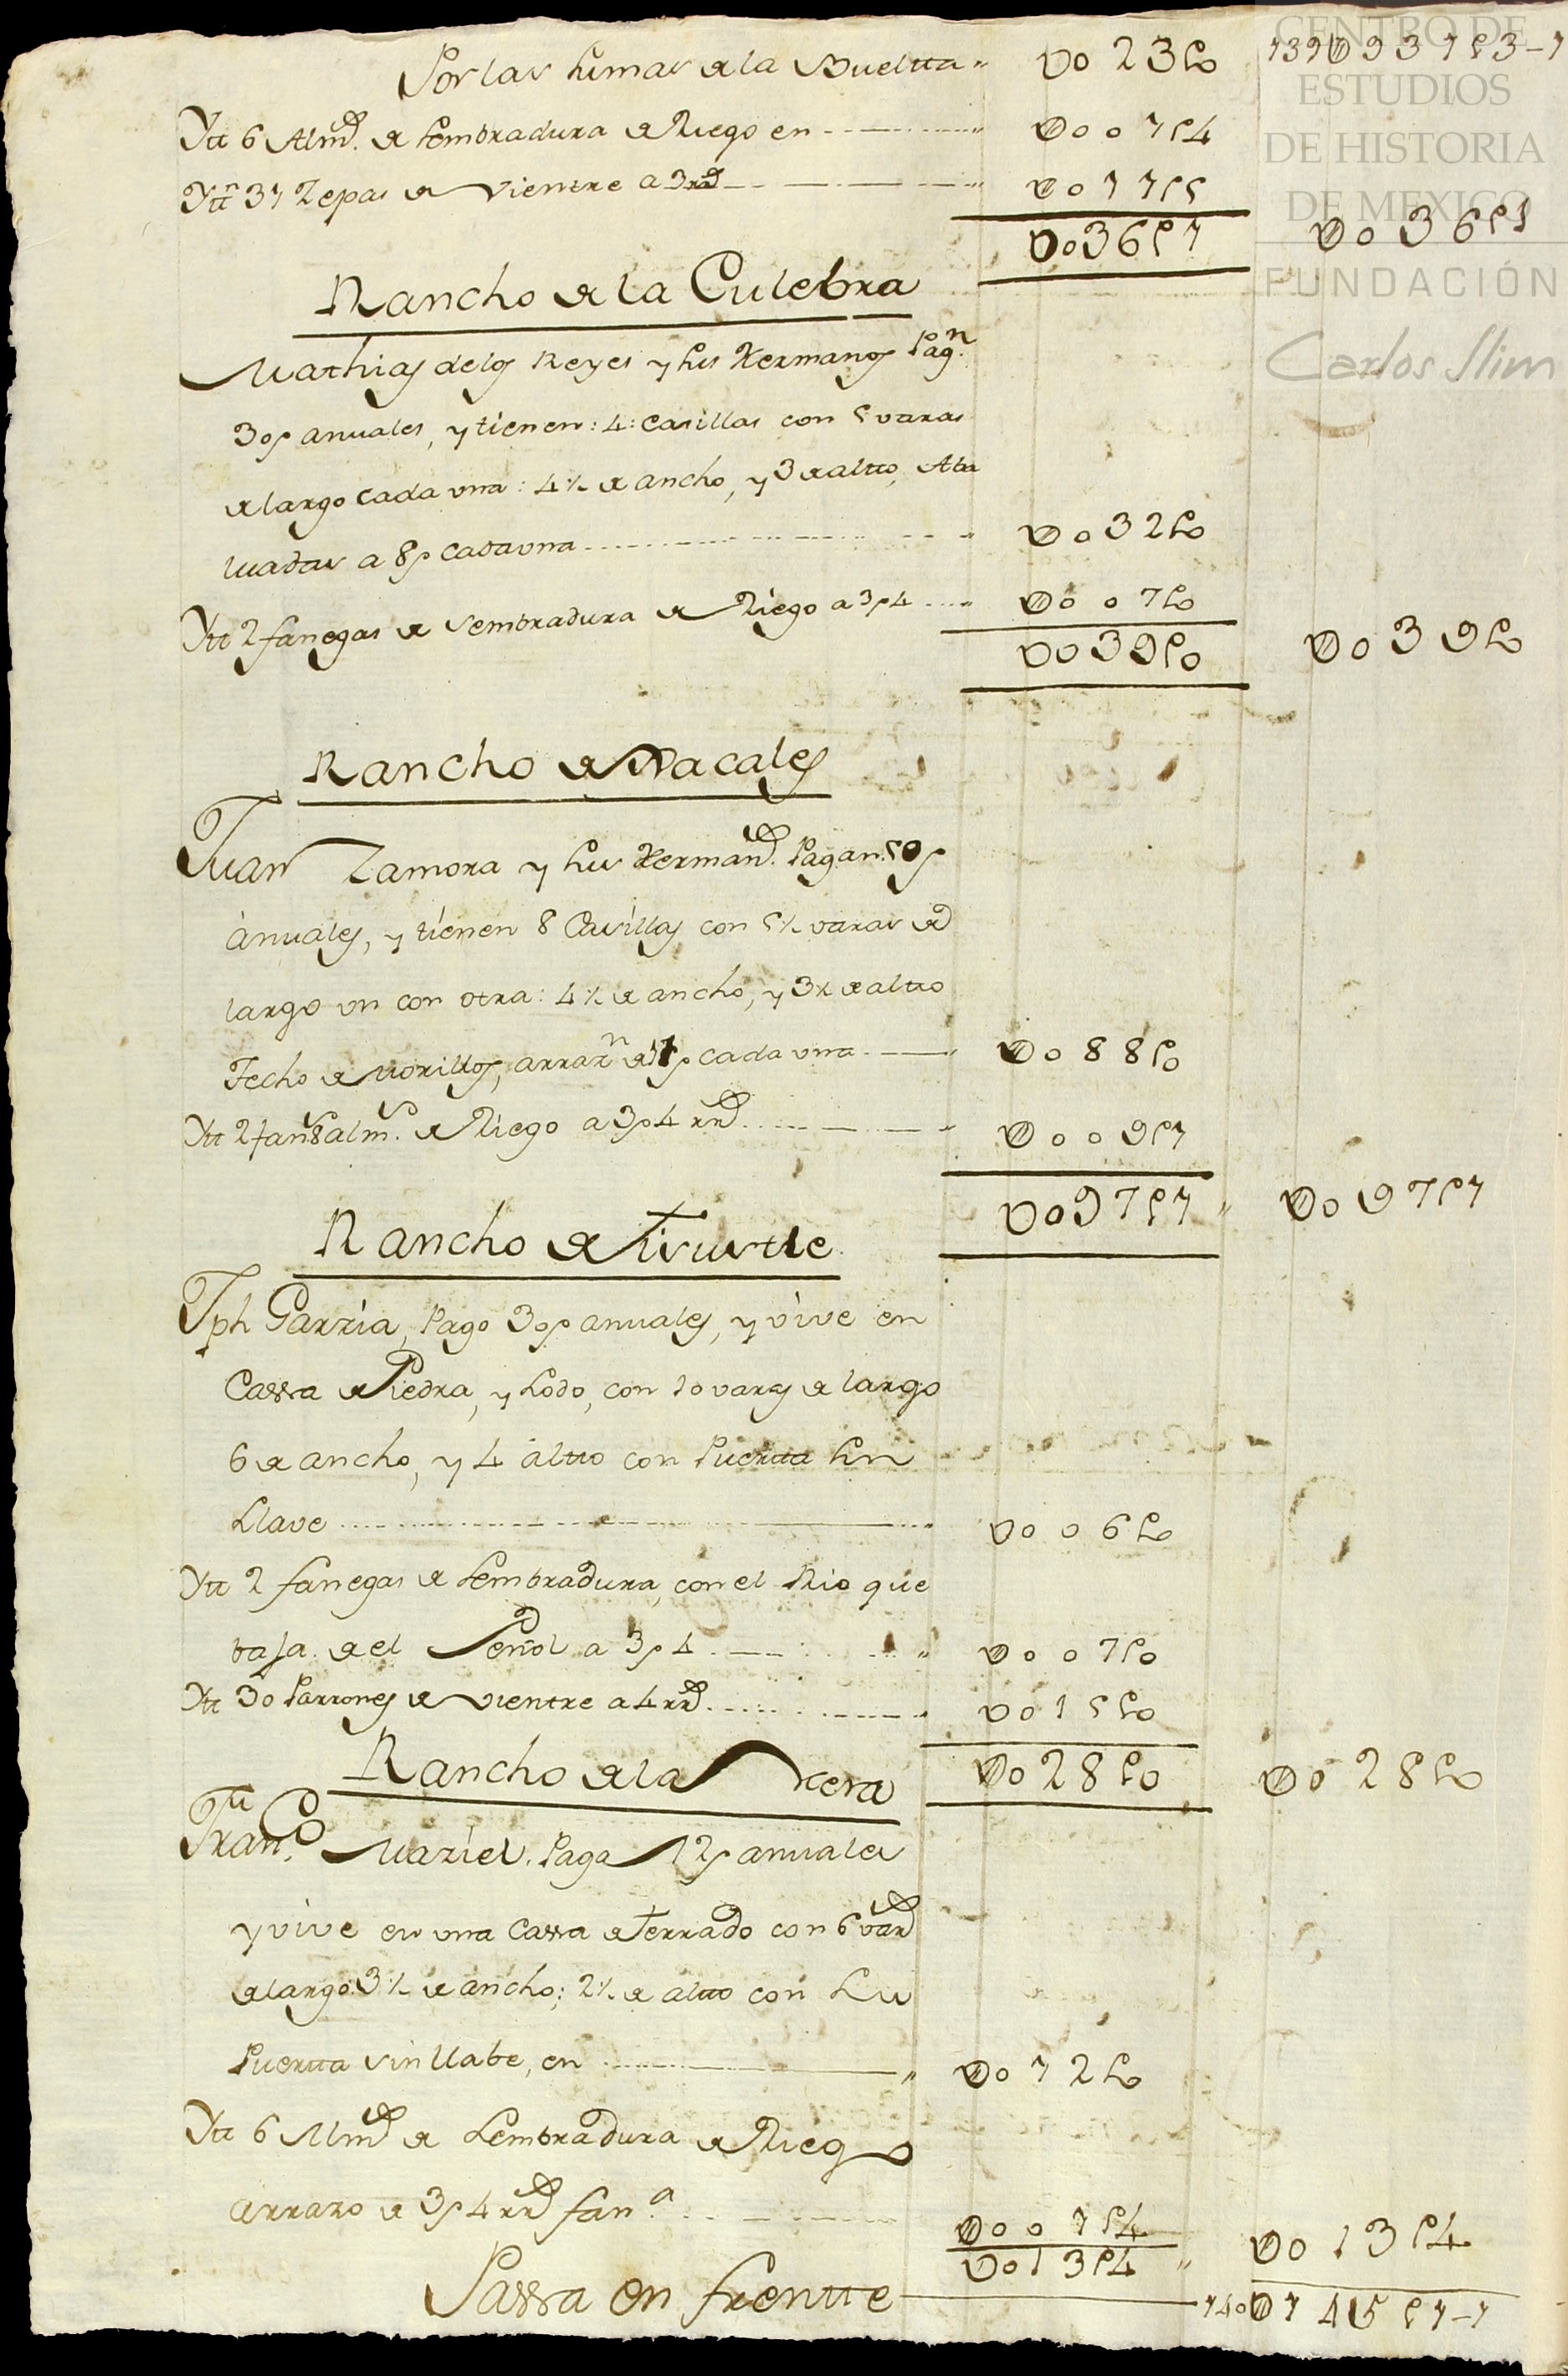 Por las sumas de la Bueltta U023p0 139U093p3-1
Ytt 6 Almd. de sembradura de Riego en U001p4
Yttn 31 Zepas de Vientre a 3 rrd U011p5
U036p1 U036p1
Rancho de la Culebra
Mathias delos Reyes y sus Hermanos Pagn.
30p anuales, y tienen: 4: casillas con 5 varas
de largo cada vna: 4½ de ancho, y 3 de altto, Aba
luadas a 8p cada vna U032p0
Ytt 2 fanegas de sembradura de Riego a 3p4 U007p0
U039p0 U039p0
Rancho de Nacales
Juan Zamora y sus Hermand. Pagan 50p
anuales, y tienen 8 Casillas con 5½ varas de
largo vn con otra: 4½ de ancho, y 3½ de altto
Techo de morillos, arran de 11p cada vna U088p0
Ytt 2 fans 8 alms. de Riego a 3p4 rrd U009p1
U097p1 U097p1
Rancho de
Jph Garzia, Pago 30p anuales, y vive en
Cassa de Piedra, y Lodo, con 10 varas de largo
6 de ancho, y 4 altto con Puertta sin
Llave U006p0
Ytt 2 fanegas de sembradura, con el Rio que
baja del Peñol a 3p4 U007p0
Ytt 30 Parrones de vientre a 4 rrd U015p0
U028p0 U028p0
Rancho de la
Franco. Mariel. Paga 12p anuales
y vive en vna Cassa de Terrado con 6 vard
de largo: 3½ de ancho: 2½ de altto con su
Puertta sin llabe, en U012p0
Ytt 6 Almd de sembradura de Riego
arrazo de 3p4 rrd fana. U001p4
U013p4 U013p4
Passa en frentte 140U145p1-1